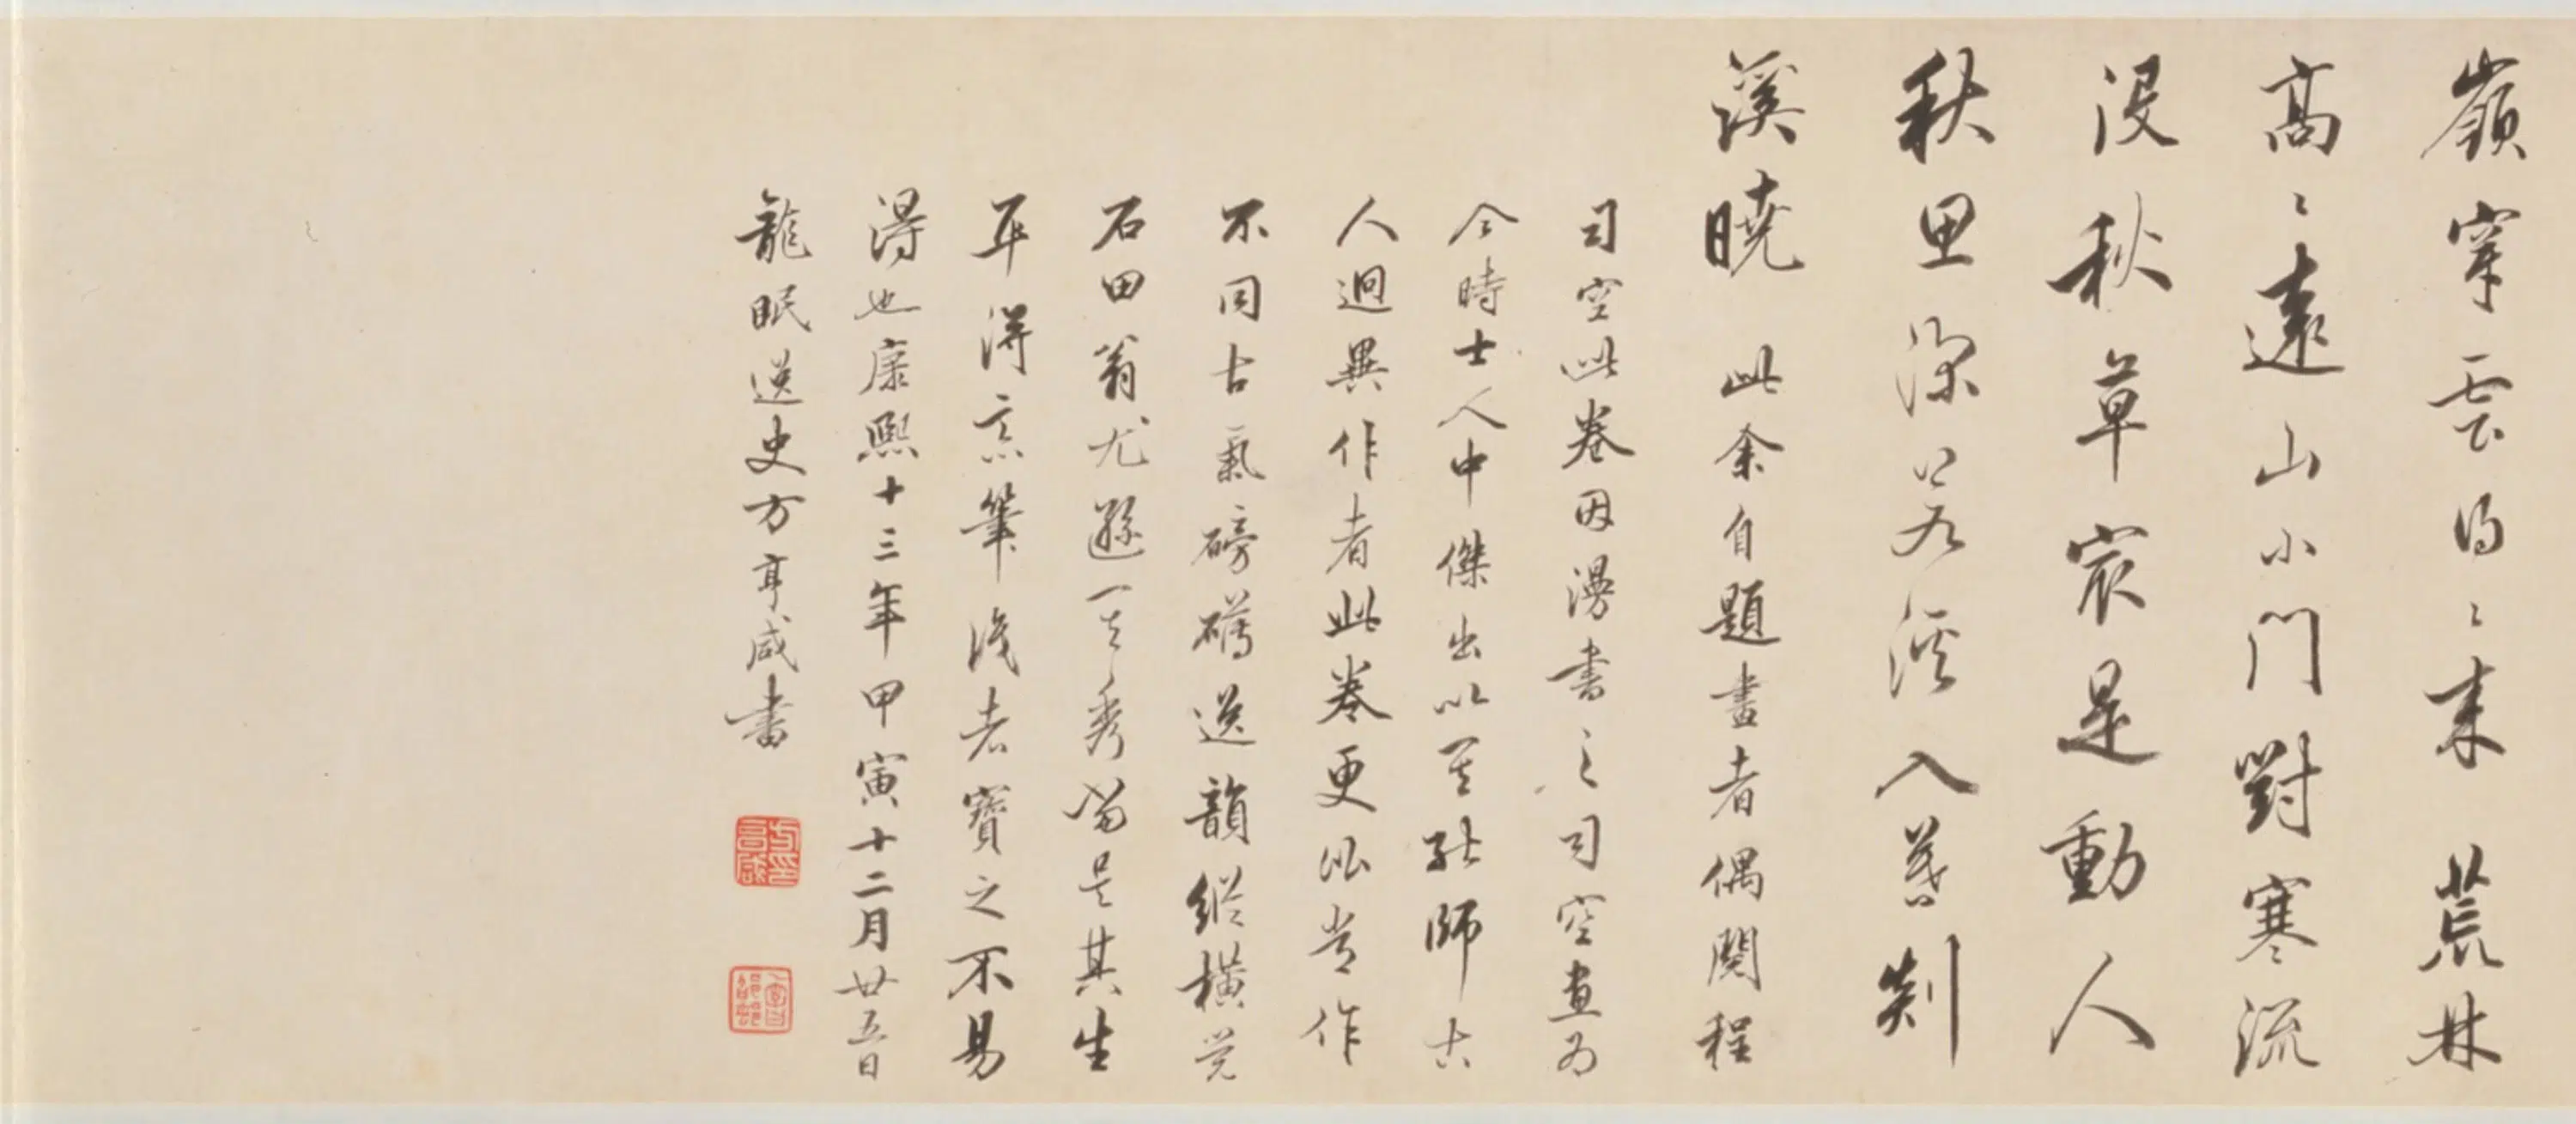 嶺穿雲得〻來荒林
高〻遠山小門對寒流
沒秋草最是動人
秋思深若溪入暮剡
溪曉此余自題畫者偶閱程
司空此卷因漫書之司空畫為
今時士人中傑出以其能師古
人迥異作者此卷更似常作
不同古氣磅礴逸韻縱橫覺
石田翁尤遜一其秀當是其生
平得意筆識者寶之不易
得也康熙十三年甲寅十二月廿五日
龍眠逸史方亨咸書